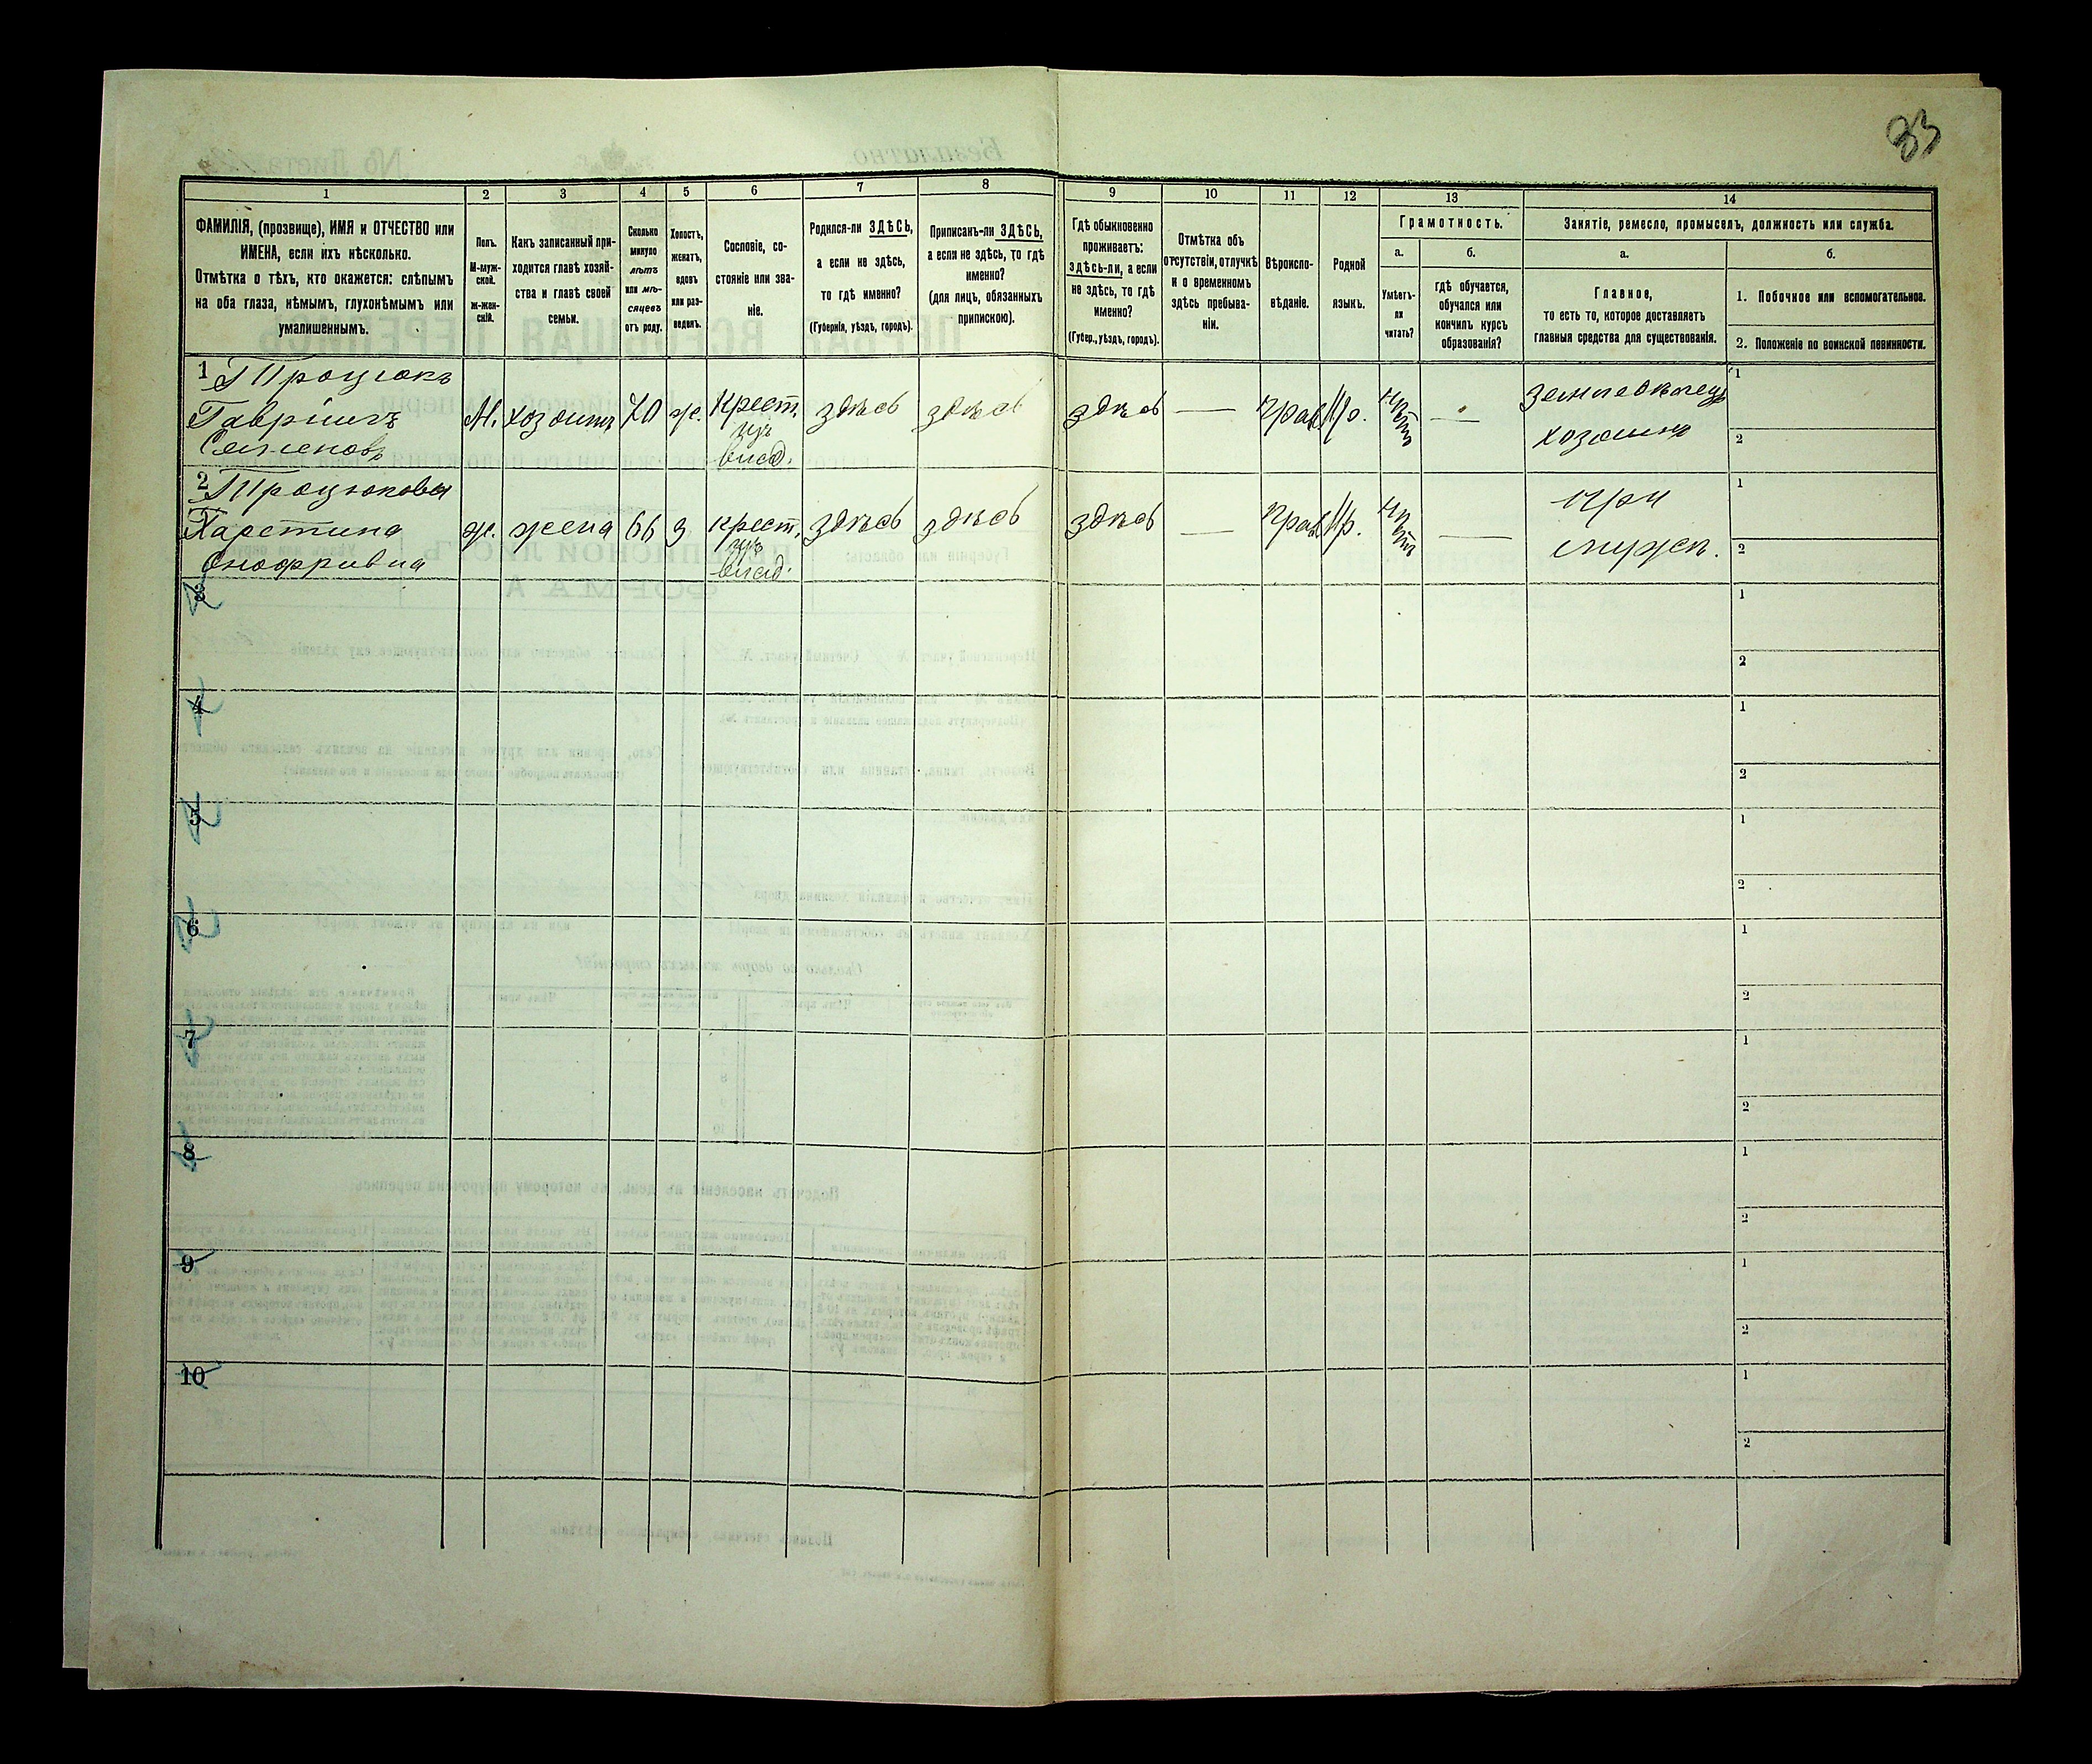 83
1 2 3 4 5 6 7 8 9 10 11 12 13 14
ФАМИЛІЯ, (прозвище), ИМЯ и ОТЧЕСТВО или
ИМЕНА, если ихъ нѣсколько.
Отмѣтка о тѣхъ, кто окажется: слѣпымъ
на оба глаза, нѣмымъ, глухонѣмымъ или
умалишеннымъ.
Полъ.
М-муж-
ской.
Ж-жен-
скій.
Какъ записанный при-
ходится главѣ хозяй-
ства и главѣ своей
семьи.
Сколько
минуло
лѣтъ
или мѣ-
сяцевъ
отъ роду.
Холостъ,
женатъ,
вдовъ
или раз-
веденъ.
Сословіе, со-
стояніе или зва-
ніе.
Родился-ли ЗДѢСЬ,
а если не здѣсь,
то гдѣ именно?
(Губернія, уѣздъ, городъ).
Приписанъ-ли ЗДѢСЬ,
а если не здѣсь, то гдѣ
именно?
(для лицъ, обязанныхъ
припискою).
Гдѣ обыкновенно
проживаетъ:
здѣсь-ли, а если
не здѣсь, то гдѣ
именно?
(Губер., уѣздъ, городъ).
Отмѣтка объ
отсутствіи, отлучкѣ
и о временномъ
здѣсь пребыва-
ніи.
Вѣроиспо-
вѣданіе.
Родной
языкъ.
Грамотность.
а.
Умѣетъ-
ли
читать?
б.
гдѣ обучается,
обучался или
кончилъ курсъ
образованія?
Занятіе, ремесло, промыселъ, должность или служба.
а.
Главное,
то есть то, которое доставляетъ
главныя средства для существованія.
б.
1. Побочное или вспомогательное.
2. Положеніе по воинской повинности.
1 Троцюкъ
Гавріилъ
Семеновъ
М.
хозяинъ
70
ж.
Крест.
изъ
влад.
здѣсь
здѣсь
здѣсь
—
Прав.
нѣтъ
—
Земледѣлецъ
хозяинъ
1
2
2 Троцюкова
Харетина
Онофривна
ж.
жена
66
з
крест.
изъ
влад.
здѣсь
здѣсь
здѣсь
—
Прав.
нѣтъ
—
При
мужѣ.
1
2
3
1
2
4
1
2
5
1
2
6
1
2
7
1
2
8
1
2
9
1
2
10
1
2